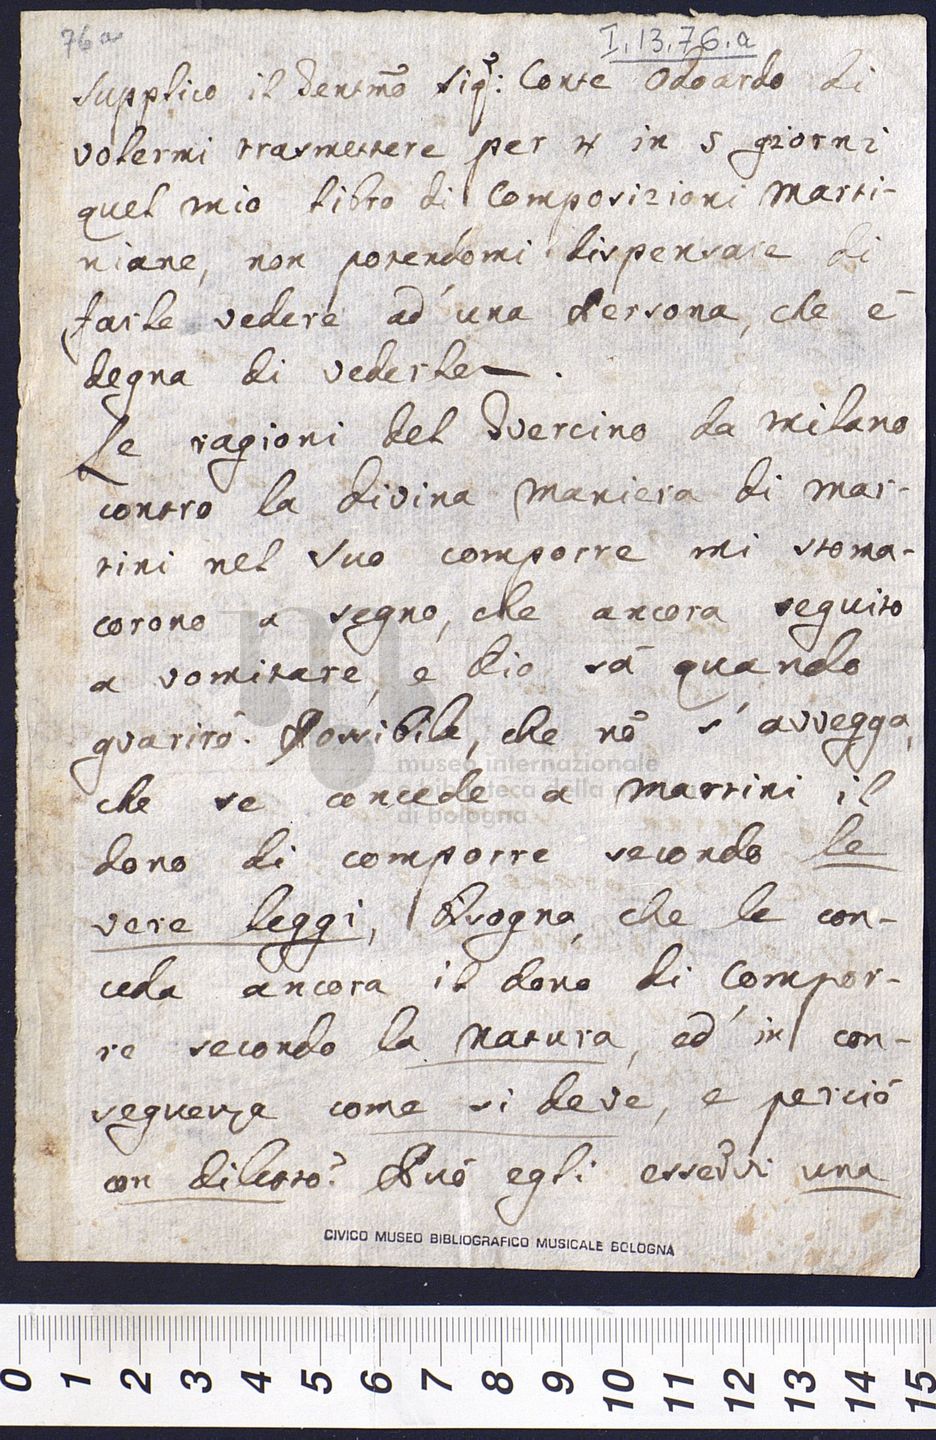 76a
I.13.76.a
supplico il Sig.r: Conte Odoardo di
volermi trasmettere per 4 in 5 giorni
quel mio libro di Composizioni Marti-
niane, non potendomi dispensare di
farle vedere ad una Persona, che é
degna di vederle.
Le ragioni del da Milano
contro la divina maniera di Mar-
tini nel suo comporre mi stoma-
corono a segno, che ancora seguito
a vomitare, e Dio sá quando
guariró. Possibile, che nõ s'avvegga,
che se concede a Martini il
dono di comporre secondo le
vere leggi, bisogna, che le con-
ceda ancora il dono di compor-
re secondo la Natura, ed in con-
seguenza come si deve, e perció
con diletto? Puó egli esservi una
museo internazionale
e biblioteca della
di bologna
CIVICO MUSEO BIBLIOGRAFICO MUSICALE BOLOGNA
0 1 2 3 4 5 6 7 8 9 10 11 12 13 14 15